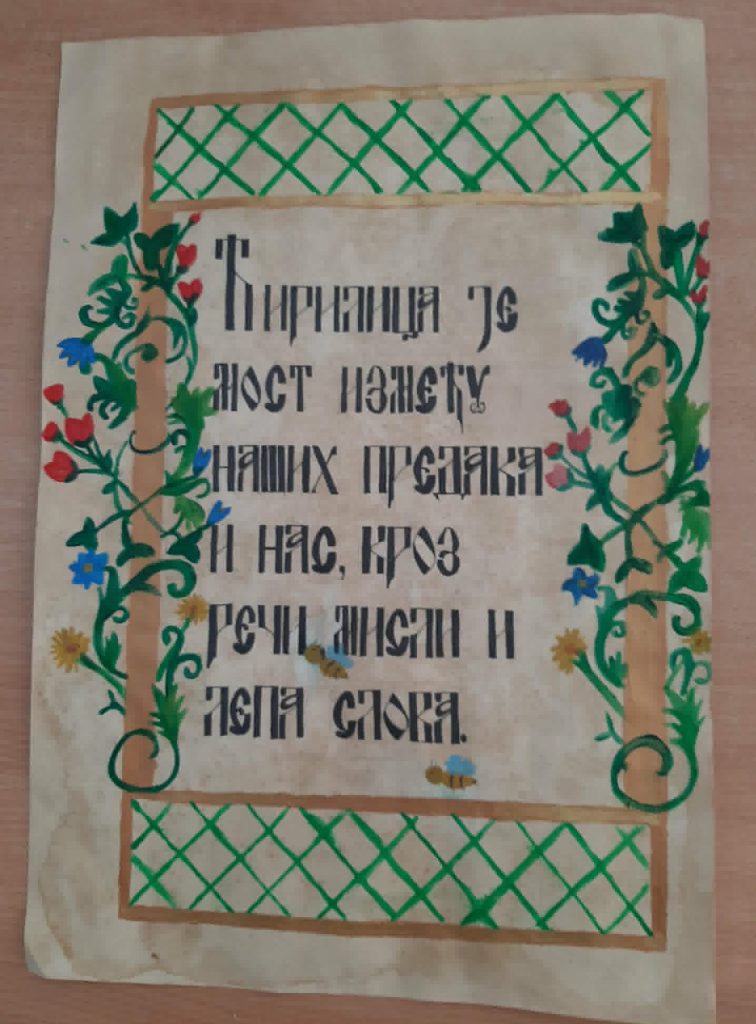 Ћирилица је
мост између
наших предака
и нас, кроз
речи мисли и
лепа слова.